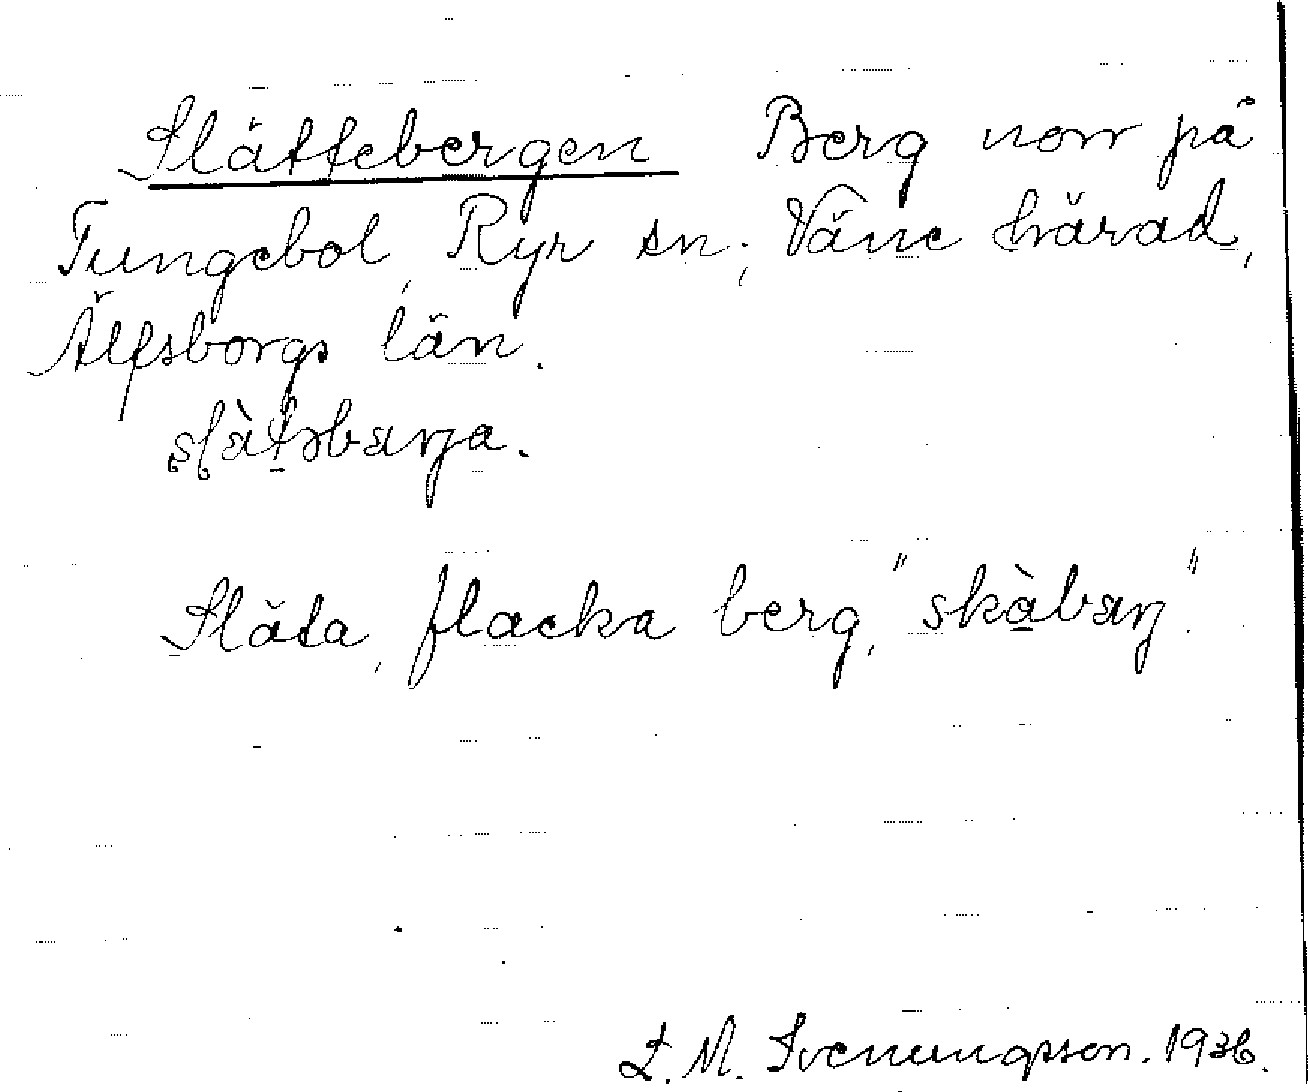 Slättebergen Berg norr på
Tungebol, Ryr sn; Väne härad,
Älfsborgs län.
Släta, flacka berg, "skàbærj".
L. M. Svenungsson. 1936.